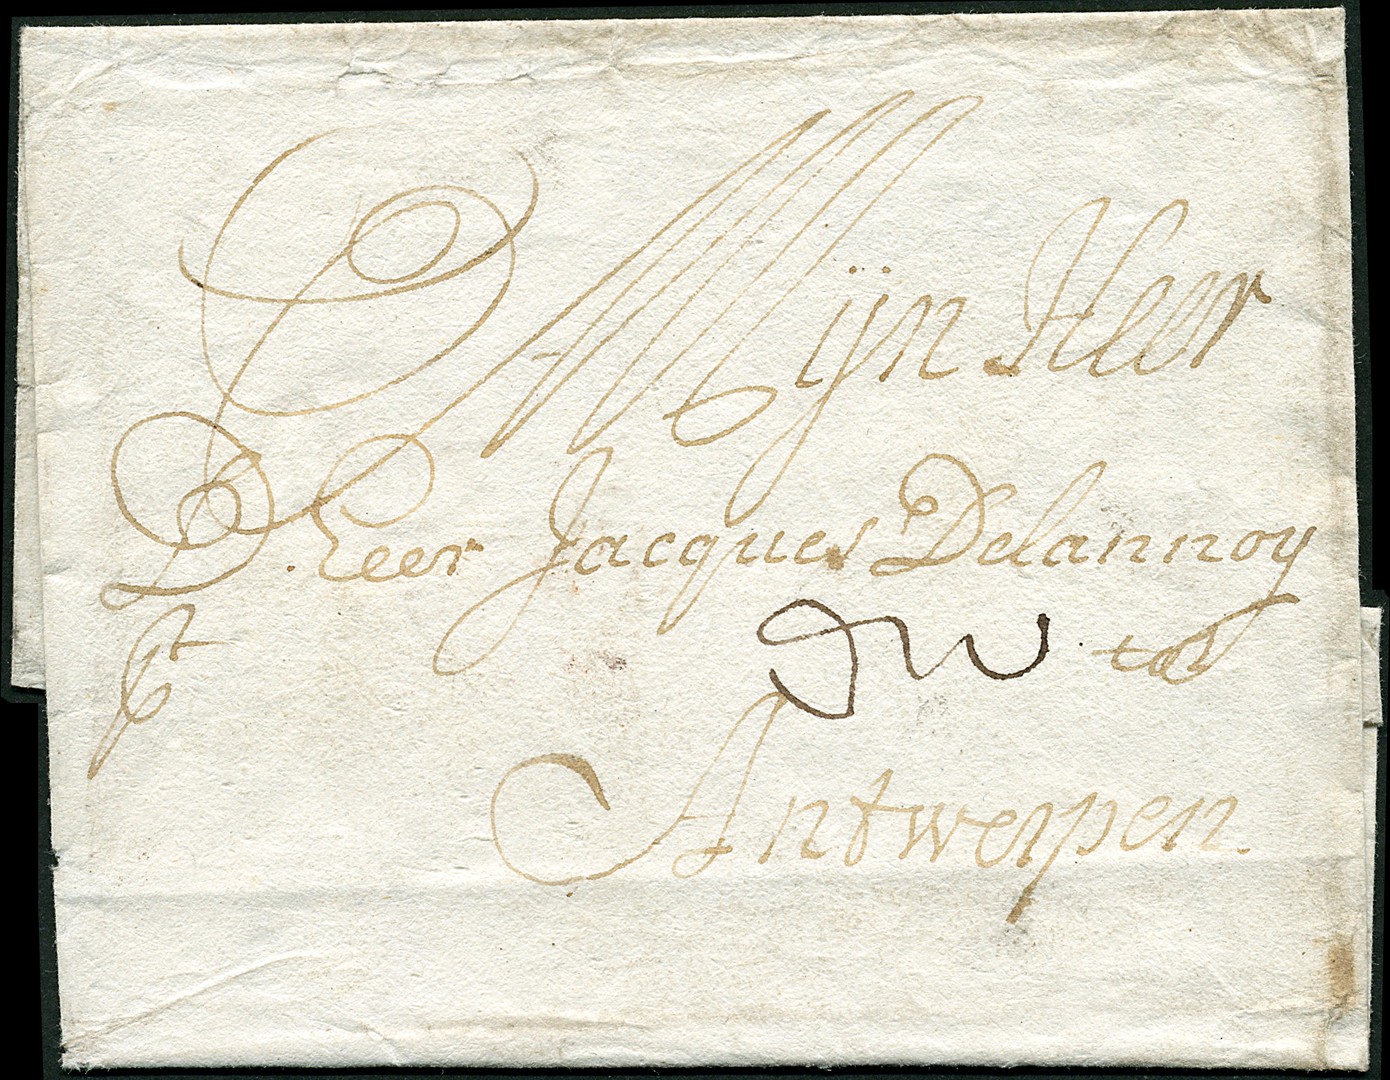 Mijn Heer
D. Heer Jacques Delannoy
tot
Antwerpen.